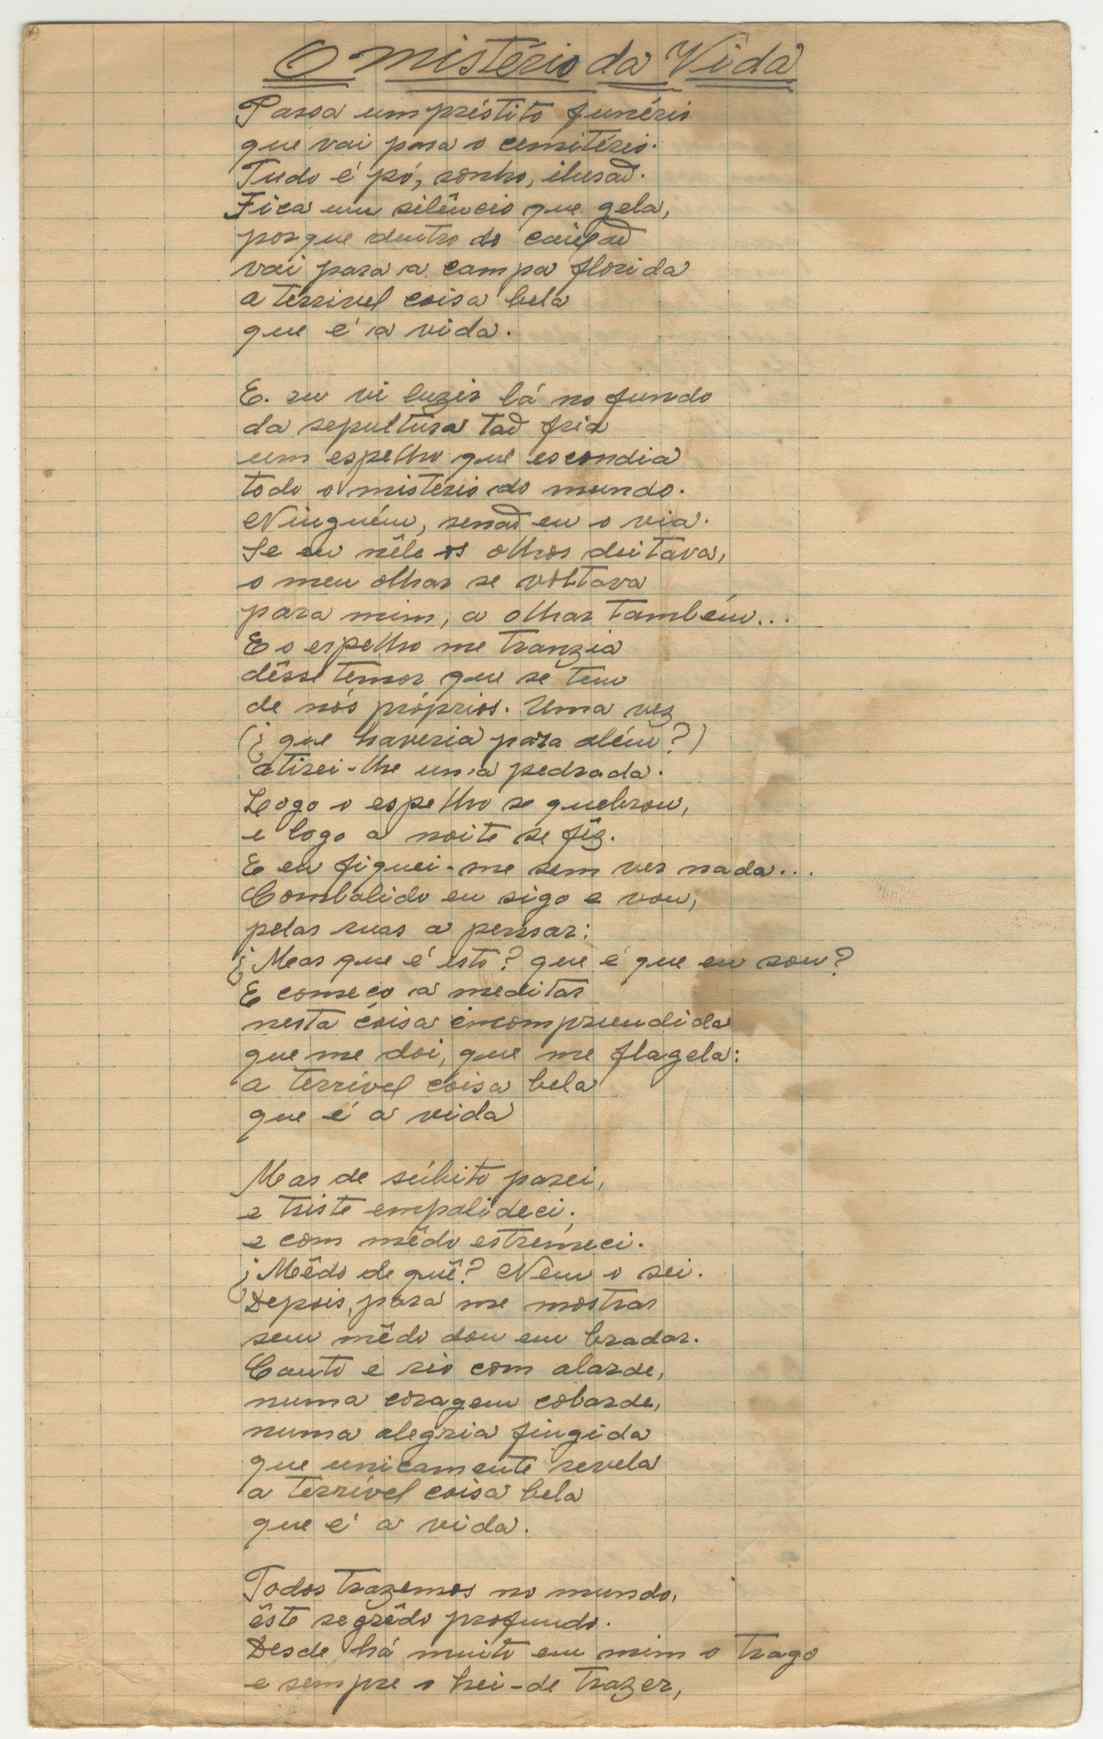 O mistério da Vida
Passa um préstito funério
que vai para o cemitério.
Tudo é pó, sonho, ilusão.
Fica um silêncio que gela,
porque dentro do caixão
vai para a campa florida
a terrivel coisa bela
que é a vida.
E eu vi luzir lá no fundo
da sepultura tão fria
um espelho que escondia
todo o mistério do mundo.
Ninguém, senão eu o via.
Se eu nêle os olhos deitava,
o meu olhar se voltava
para mim, a olhar também...
E o espelho me tranzia
dêsse temor que se tem
de nós próprios. Uma vez
(¿que haveria para além?)
atirei-lhe uma pedrada.
Logo o espelho se quebrou,
e logo a noite se fêz.
E eu fiquei-me sem ver nada...
Combalido eu sigo e vou,
pelas ruas a pensar:
¿Mas que é isto? que é que eu sou?
E começo a meditar
nesta coisa incompreendida
que me doi, que me flagela:
a terrível coisa bela
que é a vida
Mas de súbito parei,
e triste empalideci,
e com mêdo estremeci.
¿Mêdo de quê? Nem o sei.
Depois, para me mostrar
sem mêdo dou em bradar.
Canto e rio com alarde,
numa coragem cobarde,
numa alegria fingida
que unicamente revela
a terrível coisa bela
que é a vida.
Todos trazemos no mundo,
êste segrêdo profundo.
Desde há muito em mim o trago
e sempre o hei-de trazer,